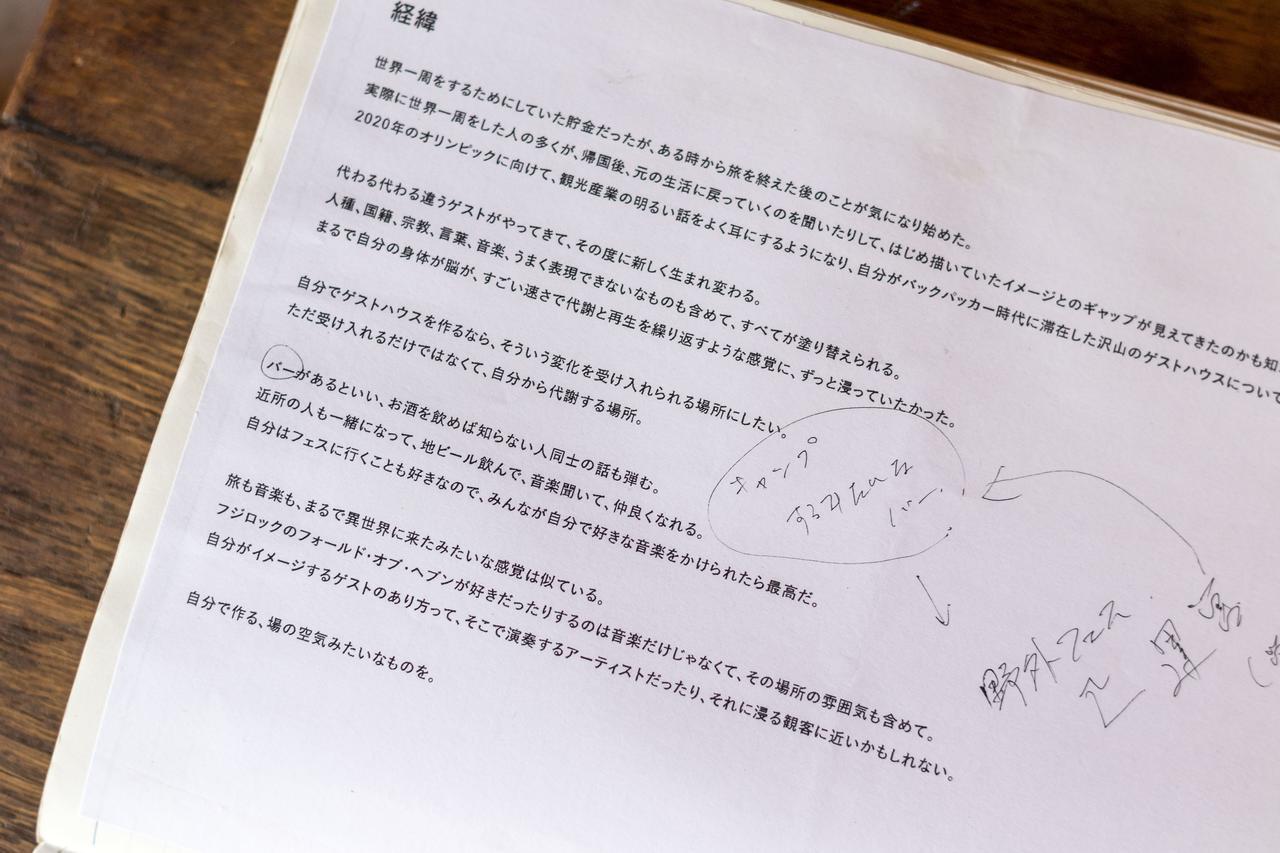 経緯
世界一周をするためにしていた貯金だったが、ある時から旅を終えた後のことが気になり始めた。
実際に世界一周をした人の多くが、帰国後、元の生活に戻っていくのを聞いたりして、はじめ描いていたイメージとのギャップが見えてきたのかも知
2020年のオリンピックに向けて、観光産業の明るい話をよく耳にするようになり、自分がバックパッカー時代に滞在した沢山のゲストハウスについて
代わる代わる違うゲストがやってきて、その度に新しく生まれ変わる。
人種、国籍、宗教、言葉、音楽、うまく表現できないなものも含めて、すべてが塗り替えられる。
まるで自分の身体が脳が、すごい速さで代謝と再生を繰り返すような感覚に、ずっと浸っていたかった。
自分でゲストハウスを作るなら、そういう変化を受け入れられる場所にしたい。
ただ受け入れるだけではなくて、自分から代謝する場所。
バーがあるといい、お酒を飲めば知らない人同士の話も弾む。
近所の人も一緒になって、地ビール飲んで、音楽聞いて、仲良くなれる。
自分はフェスに行くことも好きなので、みんなが自分で好きな音楽をかけられたら最高だ。
旅も音楽も、まるで異世界に来たみたいな感覚は似ている。
フジロックのフォールド・オブ・ヘブンが好きだったりするのは音楽だけじゃなくて、その場所の雰囲気も含めて。
自分がイメージするゲストのあり方って、そこで演奏するアーティストだったり、それに浸る観客に近いかもしれない。
自分で作る、場の空気みたいなものを。
キャンプ
するみたいな
バー
野外フェス